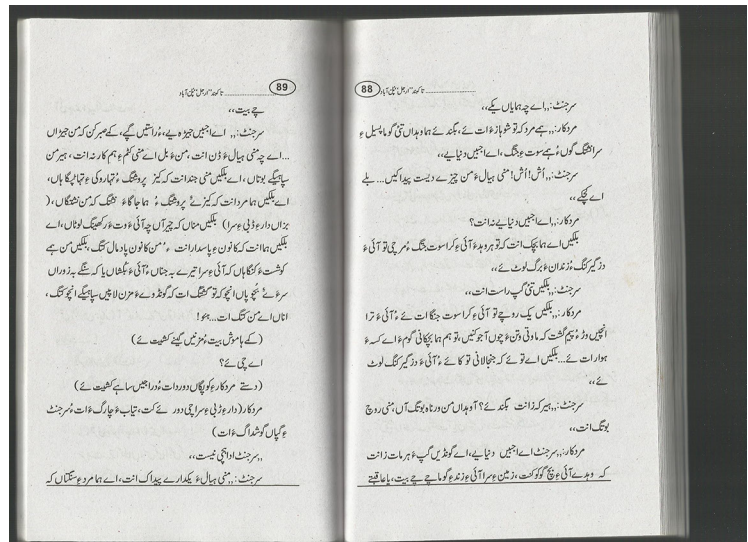 88 تاکبند "در جل" نکین آباد
سرجنٹ:,, اے چہ ہمایاں یکے،،
مردکار:,, ہے مرد کہ تو شوہاز ءَ ات ئے، بگندئے ہما وہداں تئی گوما پسیل ءِ
سرا نشتگ گوں ءُ ہمے سوت ءِ جنگ، اے اجبیں دنیا یے،،
سرجنٹ:,, اُش! اُش! منی ہیال ءَ من چیزے دیست پیدا کیں... بلے
اے کجکے،،
مردکار:,, اے اجبیں دنیا یے نہ انت؟
بلکیں اے ہما بچک انت کہ تو ہر وہد ءَ آئی ءِ کرا سوت جنگ ءُ مرچی تو آئی ءَ
دزگیر کنگ ءُ زندان ءَ برگ لوٹ ئے،،
سرجنٹ:,, بلکیں تئی گپ راست انت،،
مردکار:,, بلکیں یک روچے تو آئی ءِ کرا سوت جنگا ات ئے ءُ آئی ءَ ترا
انچیں وڑ ءُ پیم گشت کہ ماوتی وتن ءَ چوں آجو کنیں، تو ہم ہما بچکانی گوم ءَ اے کسہ ءَ
ہوار ات ئے... بلکیں اے تو ئے کہ جنجالانی تو کائے ءُ آئی ءَ دزگیر کنگ لوٹ
ئے،،
سرجنٹ:,, ہیر کہ زانت بگندئے؟ آ وہداں من ورناہ بوتگ آں، منی روچ
بوتگ انت،،
مردکار:,, سرجنٹ اے اجبیں دنیا یے، اے گونڈیں گپ ءَ ہر مات زانت
کہ وہدے آئی ءِ بچ گوکو کنت، زمین ءِ سرا آئی ءِ زند ءِ گوما چے چے بیت، یا عاقبتے
89 تاکبند "در جل" نکین آباد
چے بیت،،
سرجنٹ:,, اے اجبیں جیڑہ یے، ءُ راستیں گپے، کمے صبر کن کہ من جیڑاں
...اے چہ منی ہیال ءَ ڈن انت، من ءَ بل اے منی کٹم ءِ ہم کار نہ انت، ہیر من
سپاہیگے بوتاں، اے بلکیں منی جند انت کہ کیز پروشتگ ءُ تہاروکی ءِ تہا تچگا ہاں،
اے بلکیں ہما مرد انت کہ کیز ئے پروشتگ ءُ ہما جاگا ءَ نشتگ کہ من نشتگاں، (
بزاں دار ءِ ڈبی ءِ سرا) بلکیں مناں کہ چیر آں چہ آئی ءَ وت ءَ رکھینگ لوٹاں، اے
بلکیں ہما انت کہ کانون ءِ پاسدار انت ءُ من کانون پادمال کنگ، بلکیں من ہمے
کوشت ءَ کنگاہاں کہ آئی ءِ سرا تیرے بہ جناں ءُ آئی ءَ بکشاں یا کہ سنگے بہ زوراں
سر ءَ ئے بجو پاں انچو کہ تو کشتگ ات کہ گونڈو ئے ءَ مزن لاپیں سپاہیگے انچو کتگ،
اناں اے من کتگ ات...ہئو!
(کمے ہاموش بیت ءُ مزنیں گینے کشیت ئے)
اے چی ئے؟
(دستے مردکار ءِ کوپگاں دور دات ءُ دراجیں ساہے کشیت ئے)
مردکار( دار ءِ ڈبی ءِ سرا چی دور ئے کت، تیاب ءَ چارگ ءَ ات ءُ سرجنٹ
ءِ گپاں گوشداگ ءَ ات)
,,سرجنٹ ادا ہچی نیست،،
سرجنٹ:,, منی ہیال ءَ یکدارے پیداک انت، اے ہما مرد ءِ سنگتاں کہ